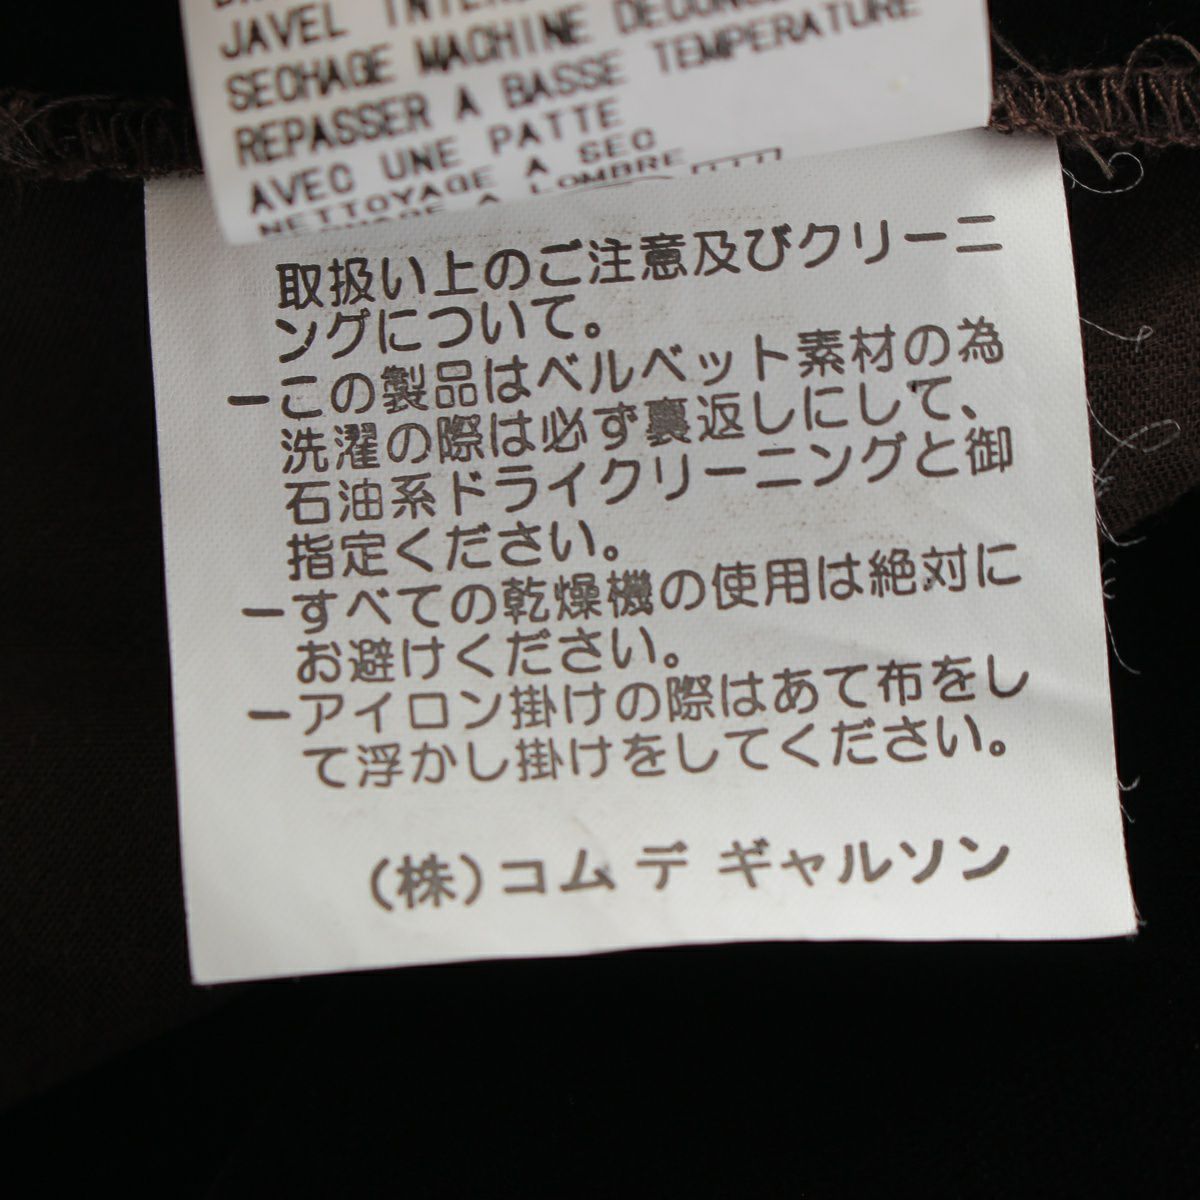 JAVEL
SECHAGE MACHINE
REPASSER A BASSE TEMPERATURE
AVEC UNE PATTE
NETTOYAGE A SEC
A L'OMBRE
取扱い上のご注意及びクリーニ
ングについて。
ーこの製品はベルベット素材の為
洗濯の際は必ず裏返しにして、
石油系ドライクリーニングと御
指定ください。
ーすべての乾燥機の使用は絶対に
お避けください。
ーアイロン掛けの際はあて布をし
て浮かし掛けをしてください。
(株)コム デ ギャルソン